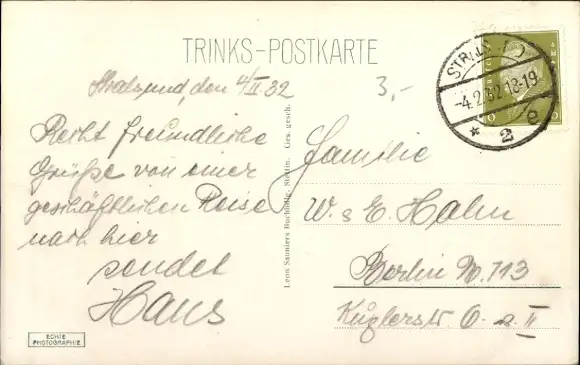 TRINKS-POSTKARTE
Stralsund, den 4/II. 32
3,-
Recht freundliche
Grüße von einer
geschäftlichen Reise
nach hier
sendet
Hans
ECHTE
PHOTOGRAPHIE
Leon Sauniers Buchhdlg. Stettin. Ges. gesch.
STRALS
-4.2.32.18-19
* 2 e
Familie
W. & E. Hahn
Berlin N. 113
Kuglerstr.
II